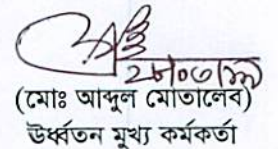 ২৮/০৩/১৯
(মোঃ আব্দুল মোতালেব)
উর্ধ্বতন মুখ্য কর্মকর্তা